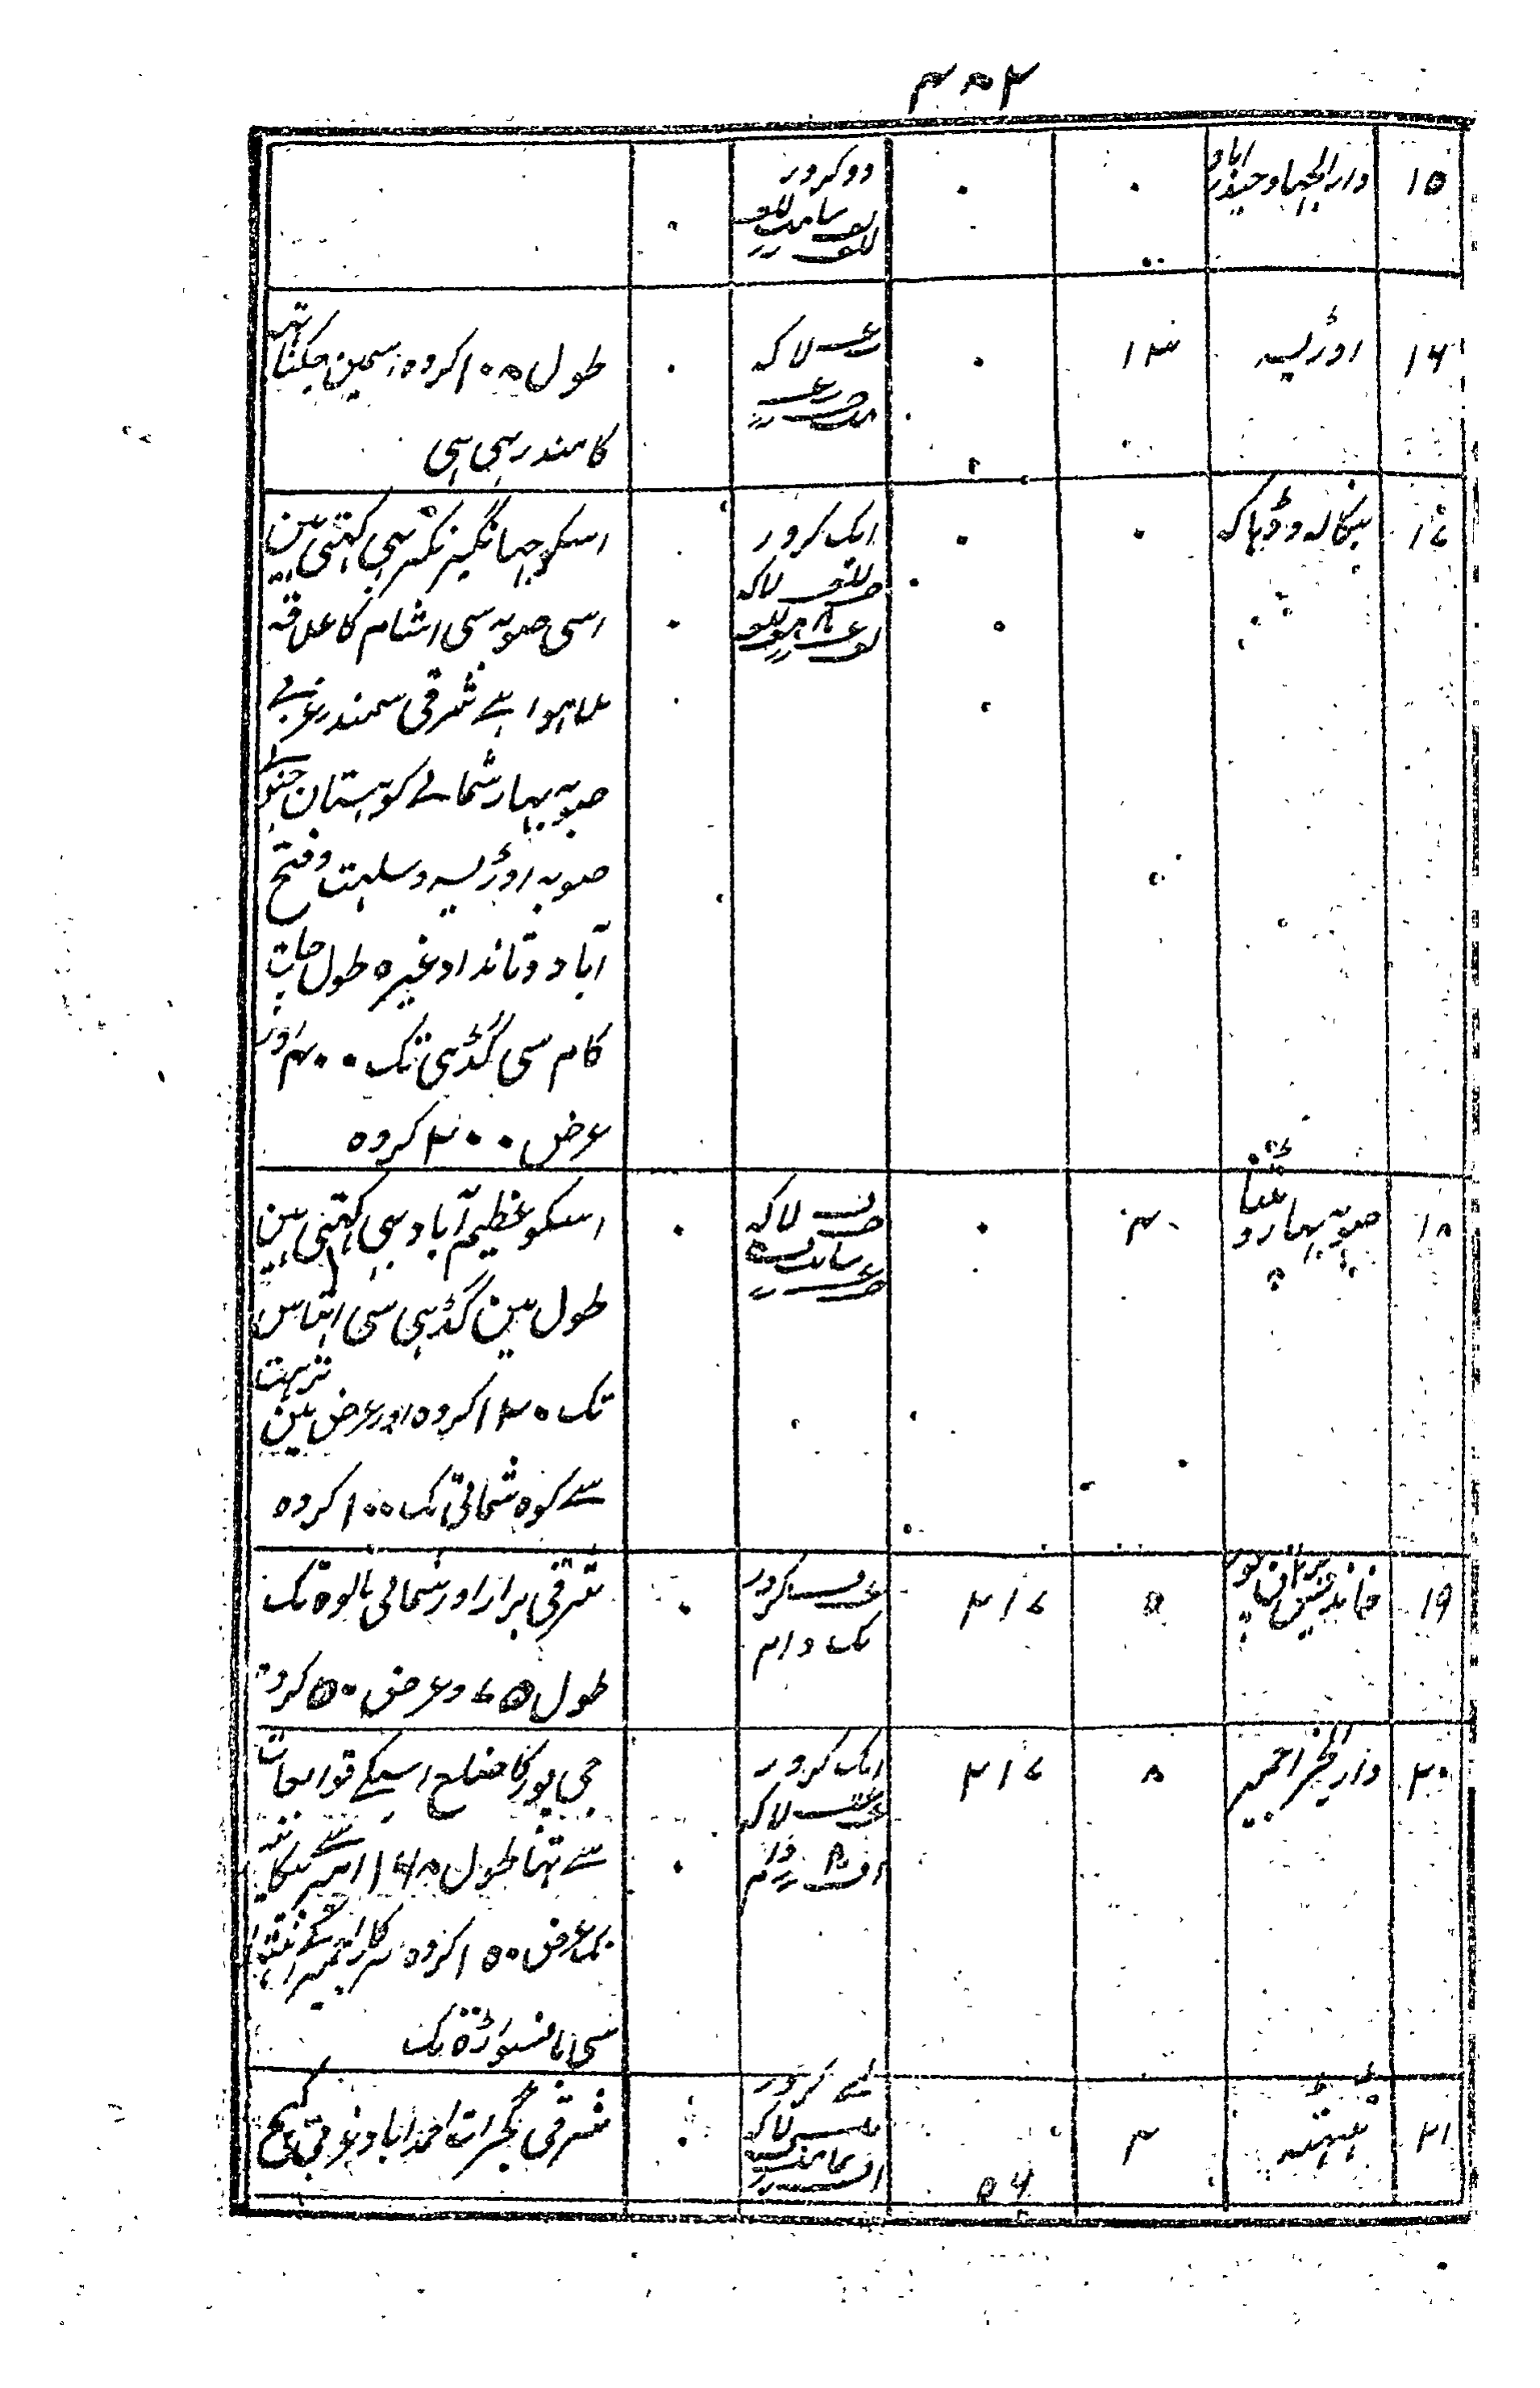 ۴۵۲
۱۵ دار الجہاد حیدراباد ۰ ۰ دو کرور ۰
۱۶ اوڑیسہ ۱۳ ۰ لاکہ ۰ طول ۱۰۵ کروہ اسمین جگناتہہ
کا مندر ہی ہی
۱۷ بنگالہ و ڈہاکہ ۰ ۰ ایک کرور لاکہ ۰ اسکو جہانگیر نگر بہی کہتی ہین
اسی صوبہ سی اشام کا علاقہ
ملا ہوا ہے شرقی سمندر غربے
صوبہ بہار شمالے کوہستان جنوبے
صوبہ اوڑیسہ و سلہت و فتح
آباد و تاندا وغیرہ طول چاٹ
کام سی گڈہی تک ۴۰۰ اور
عرض ۲۰۰ کروہ
۱۸ صوبہ بہار و پٹنا ۰ لاکہ ۰ اسکو عظیم آباد بہی کہتی ہین
طول مین گڈہی سی رہتاس
تک ۱۲۰ کروہ اور عرض مین ترہت
سے کوہ شمالی تک ۱۰۰ کروہ
۱۹ خاندیش برہانپور ۵ ۲۱۷ کرور دام ۰ شرقی برار اور شمالی مالوہ تک
طول ۷۵ و عرض ۵۰ کروہ
۲۰ دار الخیر اجمیر ۸ ۲۱۷ ایک کرور لاکہ دام ۰ جی پور کا ضلع اسیکے توابعات
سے تہا طول ۱۶۸ امبیر سے بیکانیر
تک عرض ۱۵۰ کروہ سرکار اجمیر کے
سی بانسواڑہ تک
۲۱ ٹہٹہہ ۴ ۵۶ کرور لاکہ ۰ شرقی گجرات احمداباد غربی کیچ